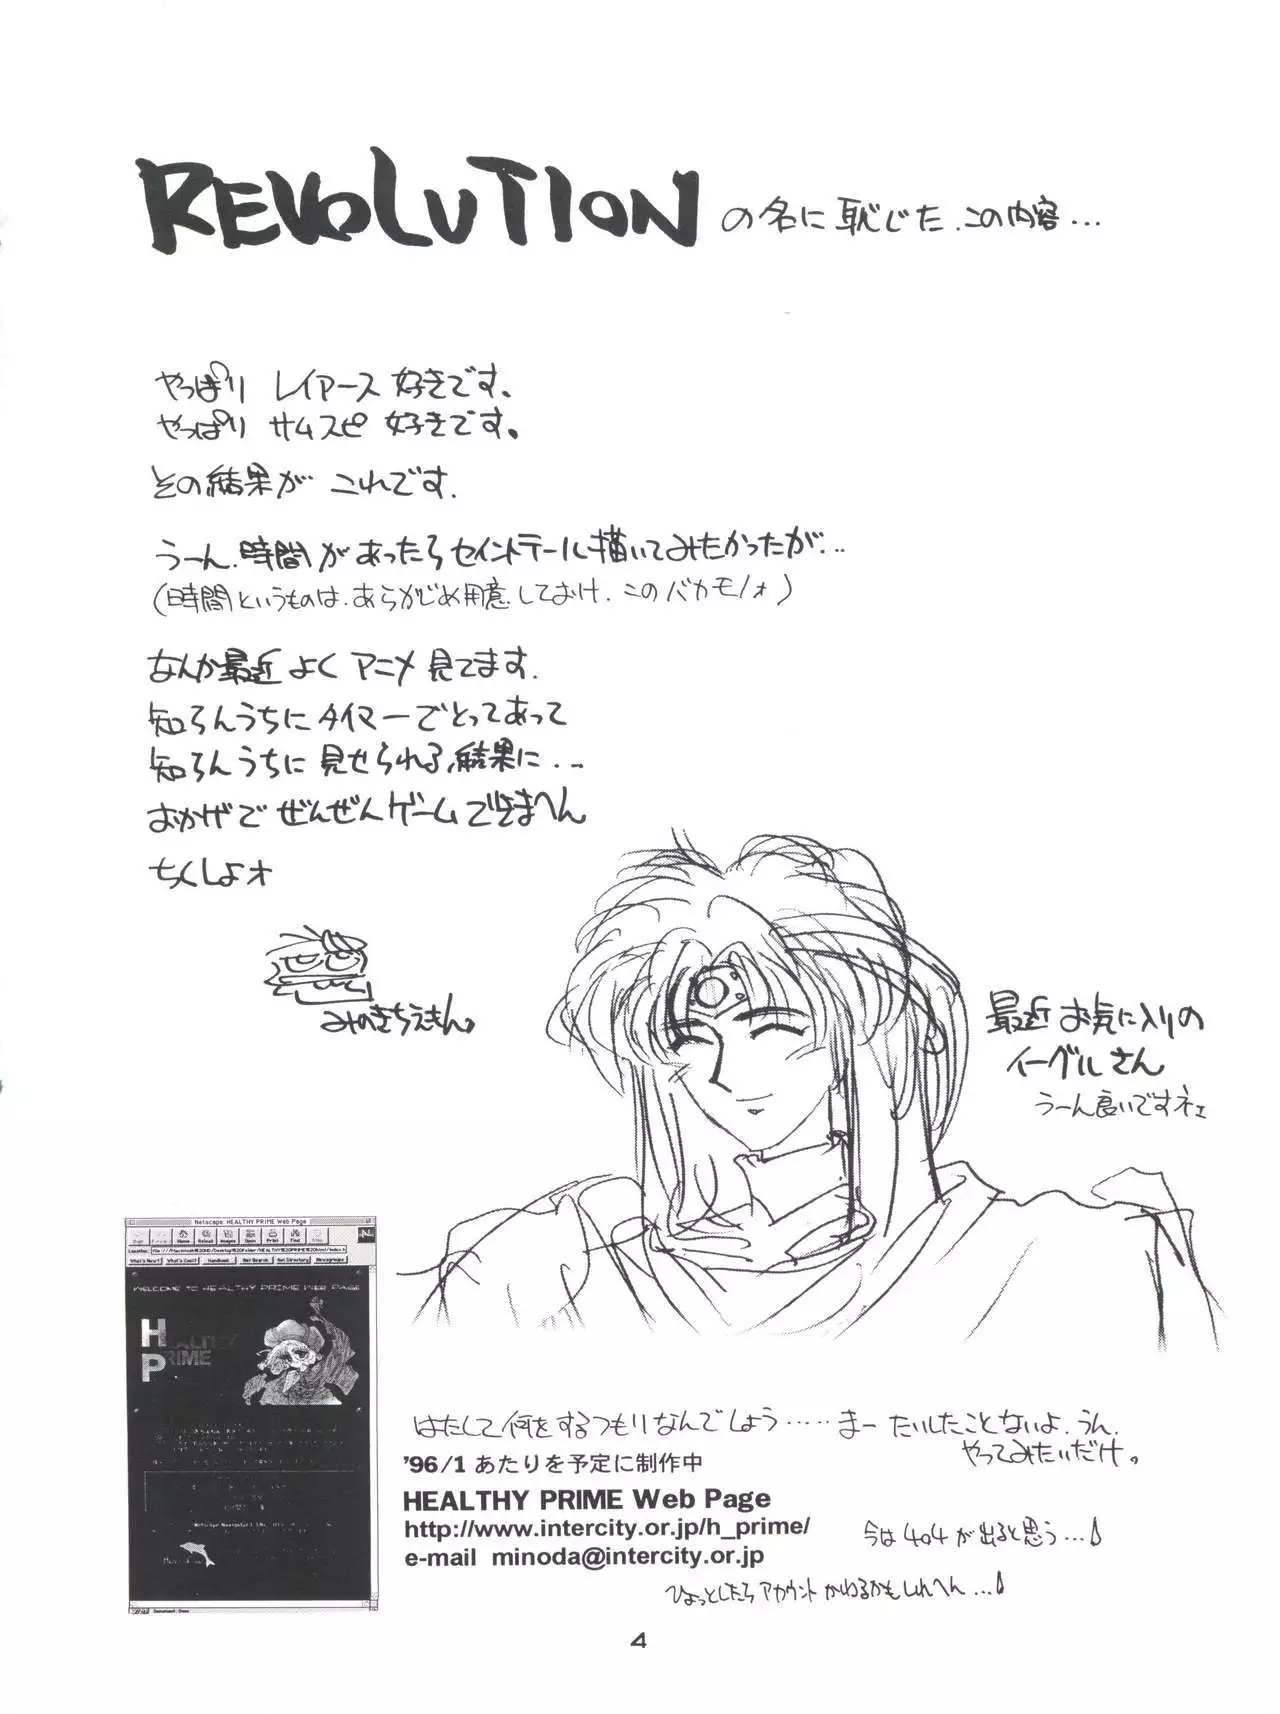 REVOLUTION の名に恥じた、この内容…
やっぱり レイアース 好きです。
やっぱり サムスピ 好きです。
その結果が これです。
うーん、時間があったらセイントテール描いてみたかったが…
(時間というものは、あらかじめ用意しておけ、このバカモノォ)
なんか最近よく アニメ 見てます。
知らんうちに タイマーでとってあって
知らんうちに 見せられる、結果に…
おかげで ぜんぜんゲームできまへん
ちくしょオ
みのきちえもん。
最近お気に入りの
イーグルさん
うーん良いですネェ
Netscape: HEALTHY PRIME Web Page
Home Reload Images Open Print Find
What's New? What's Cool? Handbook Net Search Net Directory Newsgroups
WELCOME TO HEALTHY PRIME WEB PAGE
HEALTHY
PRIME
はたして何をするつもりなんでしょう……まー たいしたことないよ、うん、
やってみたいだけ。
'96/1 あたりを予定に制作中
HEALTHY PRIME Web Page
http://www.intercity.or.jp/h_prime/
今は404が出ると思う…
e-mail minoda@intercity.or.jp
ひょっとしたらアカウントかわるかもしれへん…
4